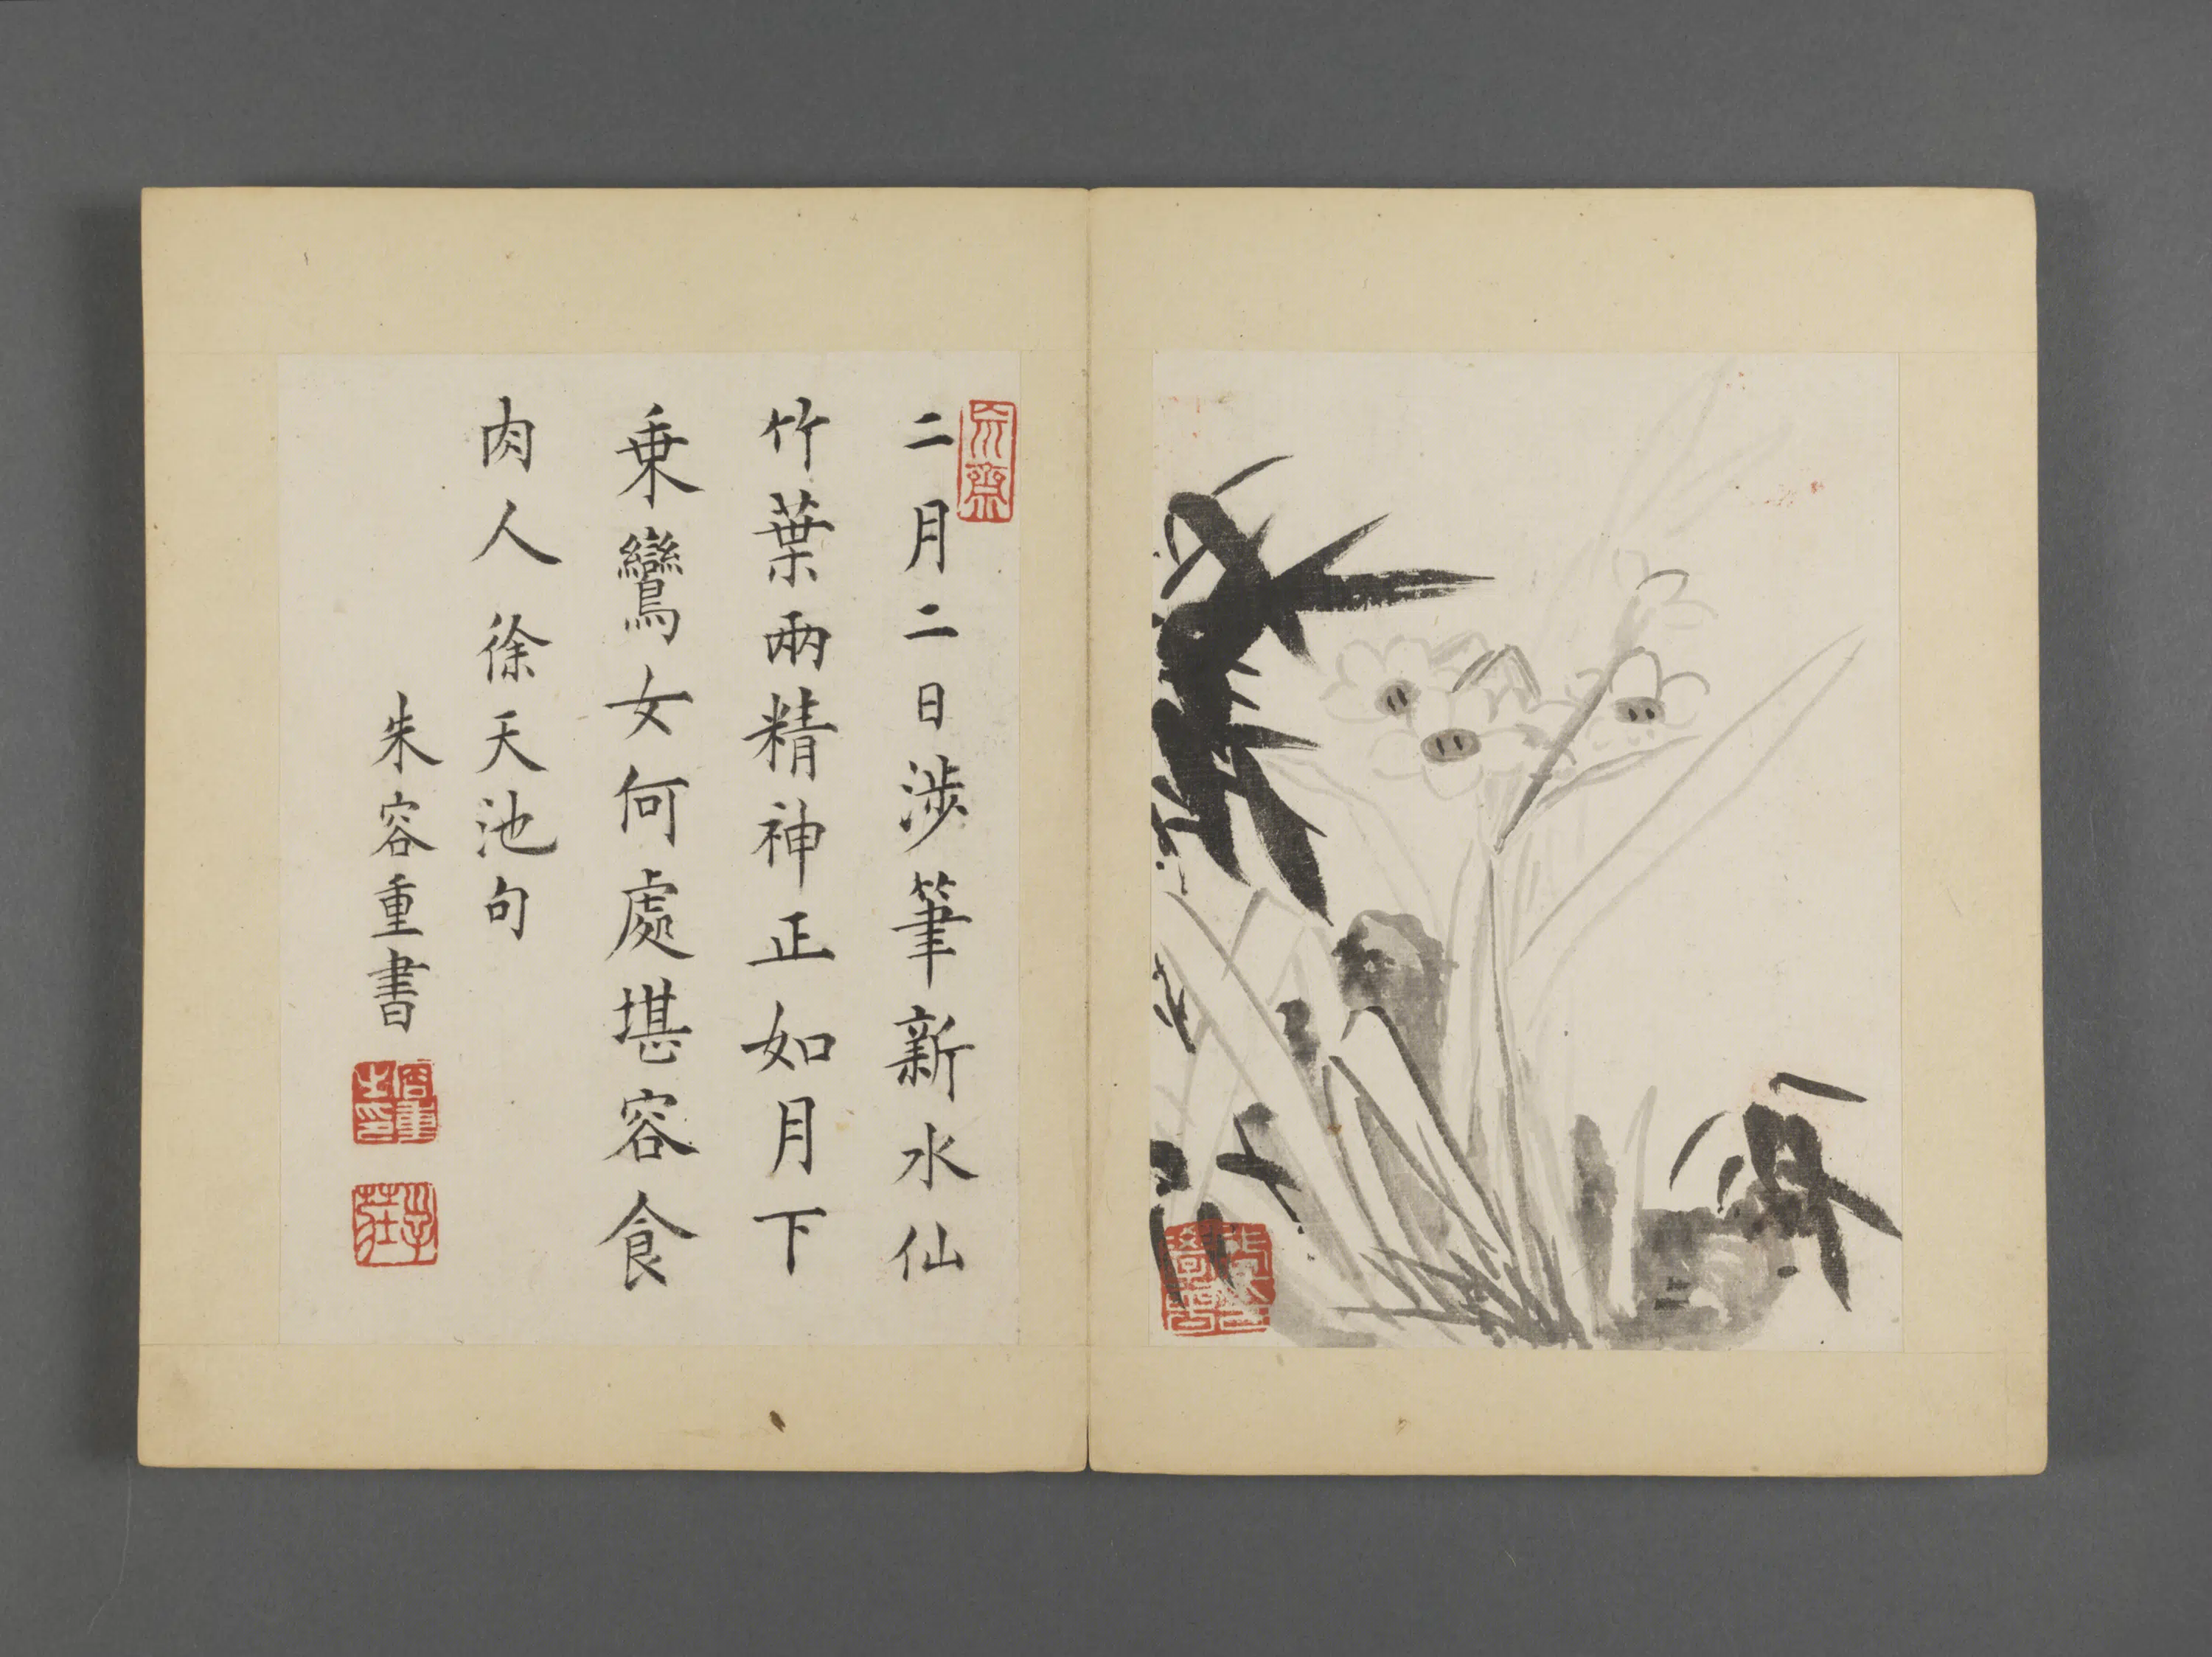 二月二日涉筆新水仙
竹葉兩精神正如月下
乗鸞女何處堪容食
肉人徐天池句
朱容重書